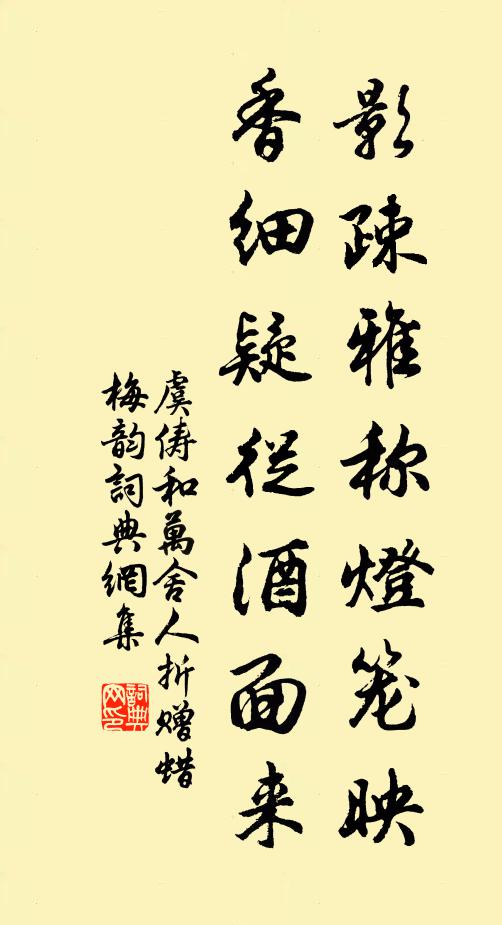 影疎雅称燈笼映
香细疑從酒面来
虞俦和萬舍人折赠蜡
梅韵詞典網集
詞典
网印